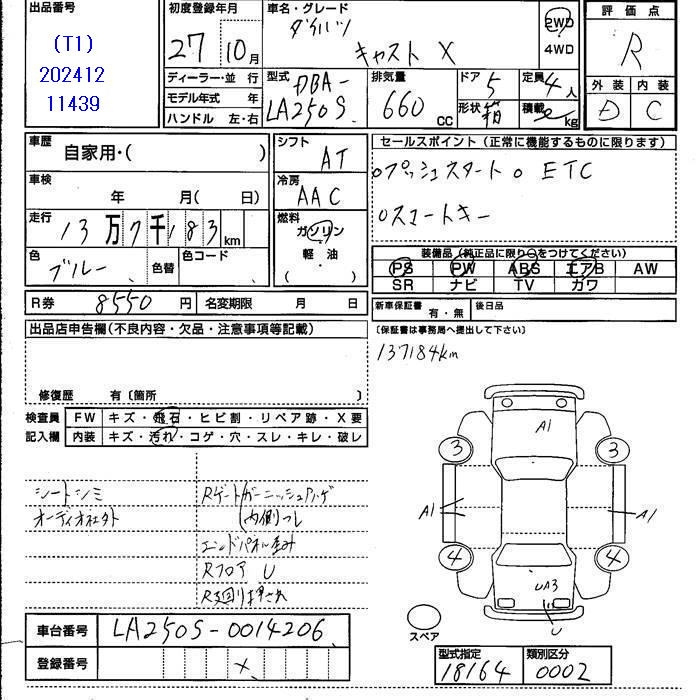 出品番号
(T1)
202412
11439
初度登録年月
27 10月
車名・グレード
ダイハツ
キャスト X
2WD
4WD
評価点
R
外装 内装
D C
ディーラー・並 行
モデル年式 年
ハンドル 左・右
型式 DBA-
LA250S
排気量 660 CC
ドア 5
形状 箱
定員 4人
積載 kg
車歴
自家用・( )
車検
年 月( 日)
走行
13万7千183km
色 ブルー 色替
色コード
シフト
AT
冷房
AAC
燃料
ガソリン
軽・油
( )
セールスポイント (正常に機能するものに限ります)
○プッシュスタート ○ ETC
○スマートキー
装備品(純正品に限り○をつけてください)
PS PW ABS エアB AW
SR ナビ TV カワ
R券 8550 円 名変期限 月 日
新車保証書 有・無 後日品
出品店申告欄(不良内容・欠品・注意事項等記載)
(保証書は事務局へ提出して下さい)
137184km
修復歴 有〔箇所 〕
検査員 FW キズ・飛石・ヒビ割・リペア跡・X要
記入欄 内装 キズ・汚れ・コゲ・穴・スレ・キレ・破レ
シートシミ
オーディオ社外
Rゲートガーニッシュハゲ
内側
エンドパネル歪み
Rフロア U
A1
3 3
A1 A1
4 4
UA3
U
スペア
車台番号 LA250S-0014206
登録番号 x
型式指定 類別区分
18164 0002